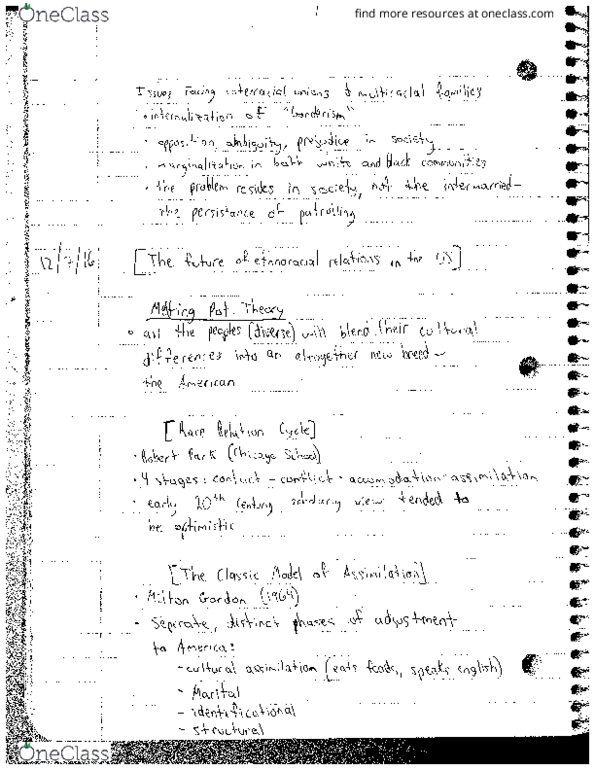 OneClass
find more resources at oneclass.com
Issues Facing interracial unions & multiracial families
• internalization of "borderism"
• opposition, ambiguity, prejudice in society
• marginalization in both white and black communities
• the problem resides in society, not the intermarried -
the persistance of patrolling
12/7/16
[The future of ethnoracial relations in the US]
Melting Pot Theory
• all the peoples (diverse) will blend their cultural
differences into an altogether new breed -
the American
[Race Relation Cycle]
• Robert Park (Chicago School)
• 4 stages: contact - conflict - accomodation - assimilation
• early 20th century scholarly view tended to
be optimistic
[The Classic Model of Assimilation]
• Milton Gordon (1964)
• Seperate, distinct phases of adjustment
to America:
- cultural assimilation (eats foods, speaks english)
- Marital
- identificational
- structural
OneClass